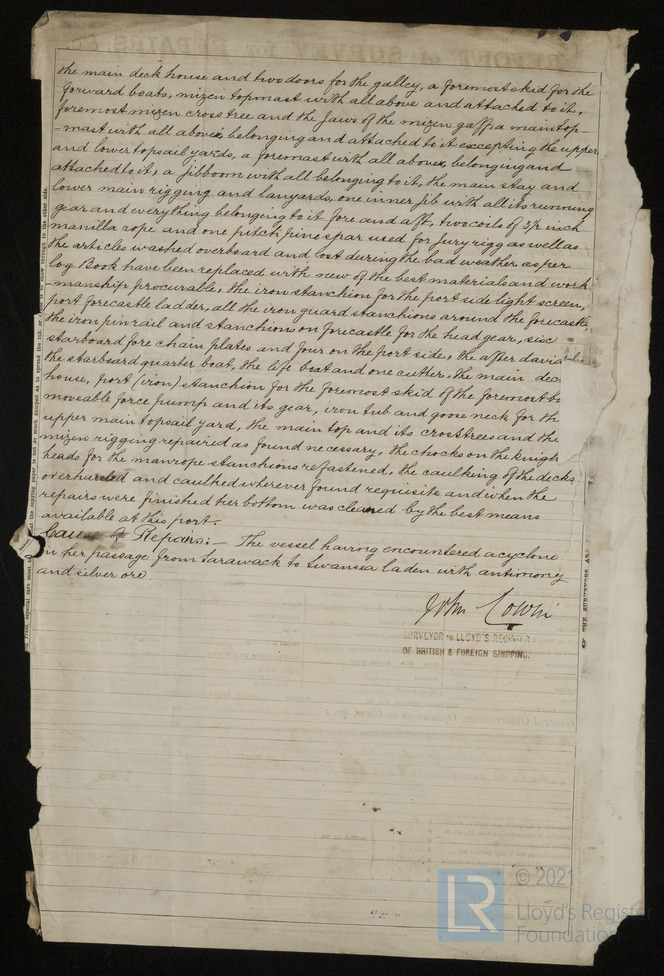 the main deck house and two doors for the galley, a foremost skid for the
forward boats, mizen topmast with all above and attached to it,
foremost mizen cross tree and the jaws of the mizen gaff, a main top-
-mast with all above, belonging and attached to it excepting the upper
and lower topsail yards, a foremast with all above, belonging and
attached to it, a jibboom with all belonging to it, the main stay and
lower main rigging and lanyards, one inner jib with all its running
gear and everything belonging to it fore and aft, two coils of 3½ inch
manilla rope and one pitch pine spar used for jury rigg as well as
the articles washed overboard and lost during the bad weather as per
log Book have been replaced with new of the best materials and work
-manship procurable, the iron stanchion for the port side light screen,
port forecastle ladder, all the iron guard stanchions around the forecastle,
the iron pin rail and stanchions on forecastle for the head gear, six
starboard fore chain plates and four on the port side, the after david
the starboard quarter boat, the life boat and one cutter, the main deck
house, port (iron) stanchion for the foremost skid of the foremost bo
moveable force pump and its gear, iron tub and goose neck for th
upper main topsail yard, the main top and its crosstrees and the
mizen rigging repaired as found necessary, the chocks on the knigh
heads for the manrope stanchions refastened, the caulking of the decks
overhauled and caulked wherever found requisite and when the
repairs were finished her bottom was cleaned by the best means
available at this port.
Cause of Repairs:- The vessel having encountered a cyclone
on her passage from Sarawack to Swansea laden with antimony
and silver ore
John Cowin
SURVEYOR to LLOYD'S REGISTER
OF BRITISH & FOREIGN SHIPPING.
© 2021
LR
Lloyd's Register
Foundation